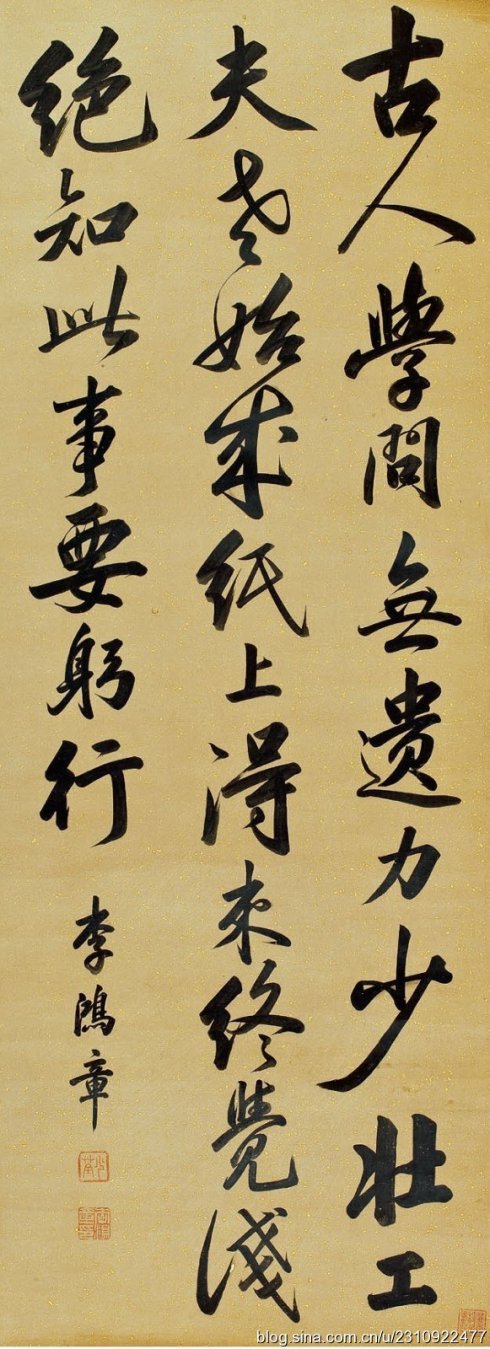 古人學問無遺力少壯工
夫老始成紙上得来終覺淺
绝知此事要躬行
李鴻章
blog.sina.com.cn/u/2310922477